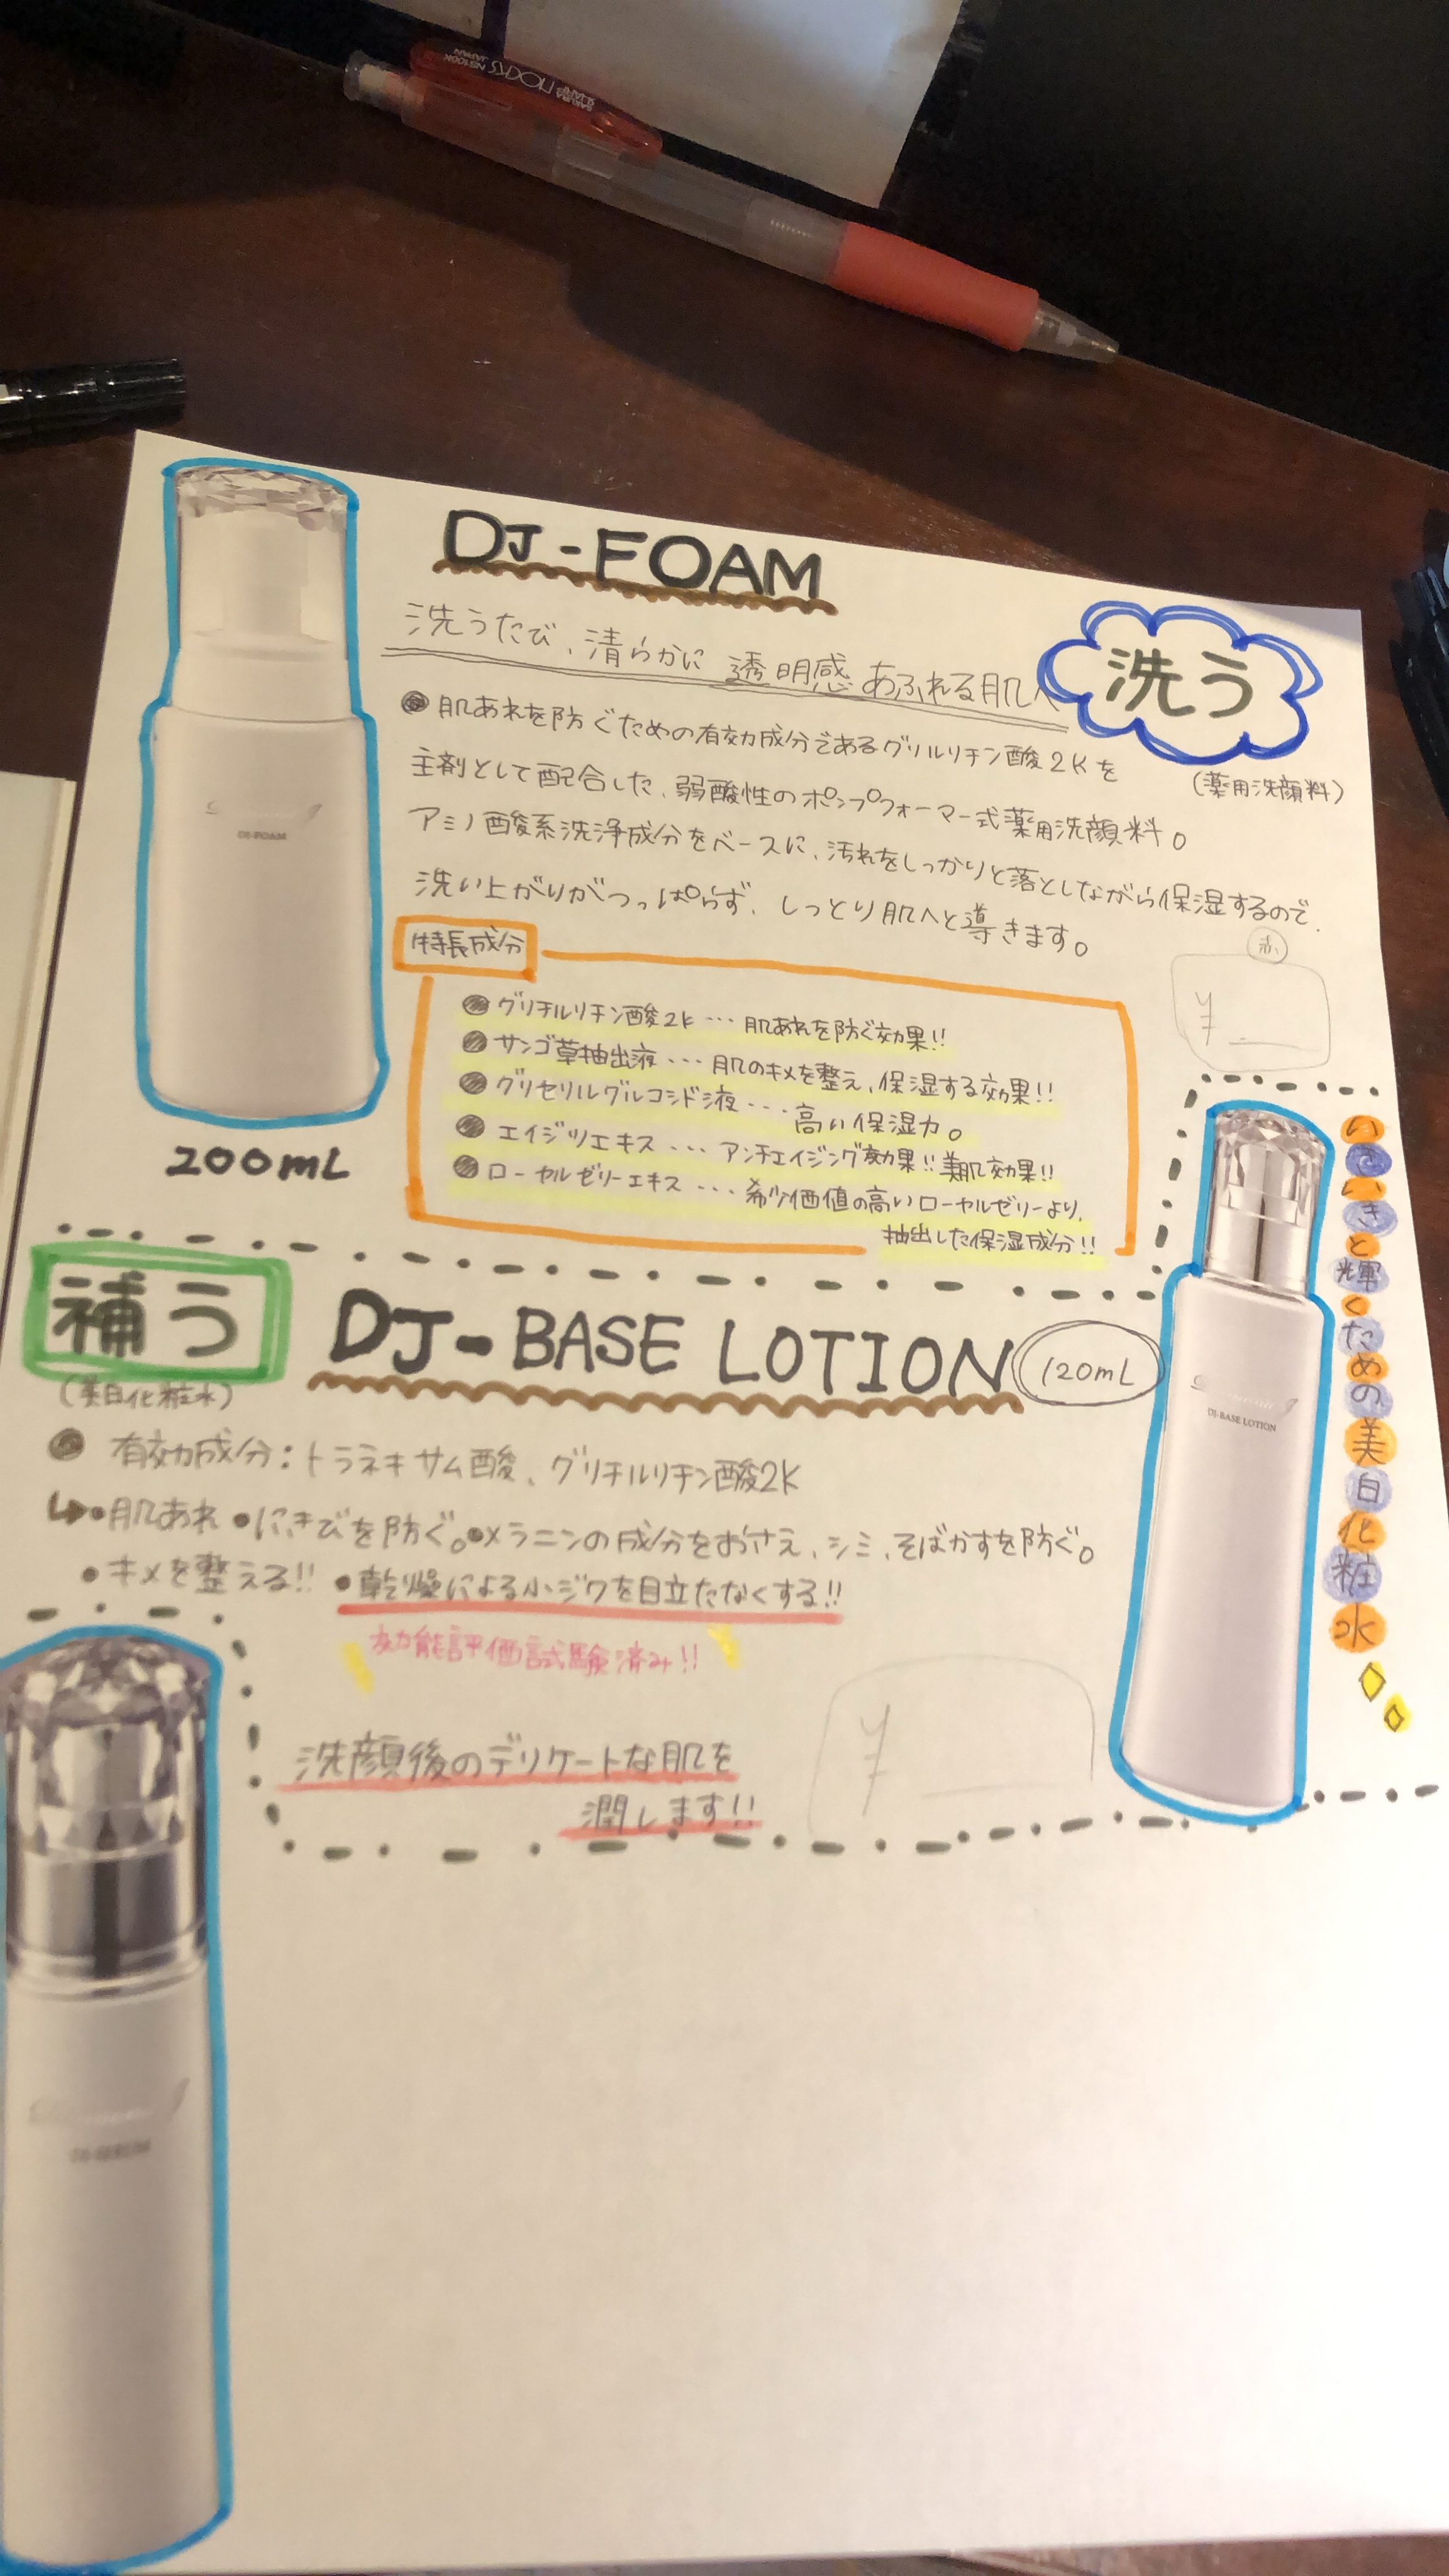 SAKURA
NOCKS
NS100K
JAPAN
DJ-FOAM
洗うたび、清らかに透明感あふれる肌へ
洗う
(薬用洗顔料)
●肌あれを防ぐための有効成分であるグリルリチン酸2Kを
主剤として配合した、弱酸性のポンプフォーマー式薬用洗顔料。
アミノ酸系洗浄成分をベースに、汚れをしっかりと落としながら保湿するので、
洗い上がりがつっぱらず、しっとり肌へと導きます。
DJ-FOAM
200mL
特長成分
●グリチルリチン酸2K…肌あれを防ぐ効果!!
●サンゴ草抽出液…肌のキメを整え、保湿する効果!!
●グリセリルグルコシド液…高い保湿力。
●エイジツエキス…アンチエイジング効果!!美肌効果!!
●ローヤルゼリーエキス…希少価値の高いローヤルゼリーより、
抽出した保湿成分!!
赤
¥
補う
(美白化粧水)
DJ-BASE LOTION
120mL
DJ-BASE LOTION
いきいきと輝くための美白化粧水
●有効成分:トラネキサム酸、グリチルリチン酸2K
↳•肌あれ•にきびを防ぐ。•メラニンの成分をおさえ、シミ、そばかすを防ぐ。
•キメを整える!!•乾燥による小ジワを目立たなくする!!
効能評価試験済み!!
洗顔後のデリケートな肌を
潤します!!
¥